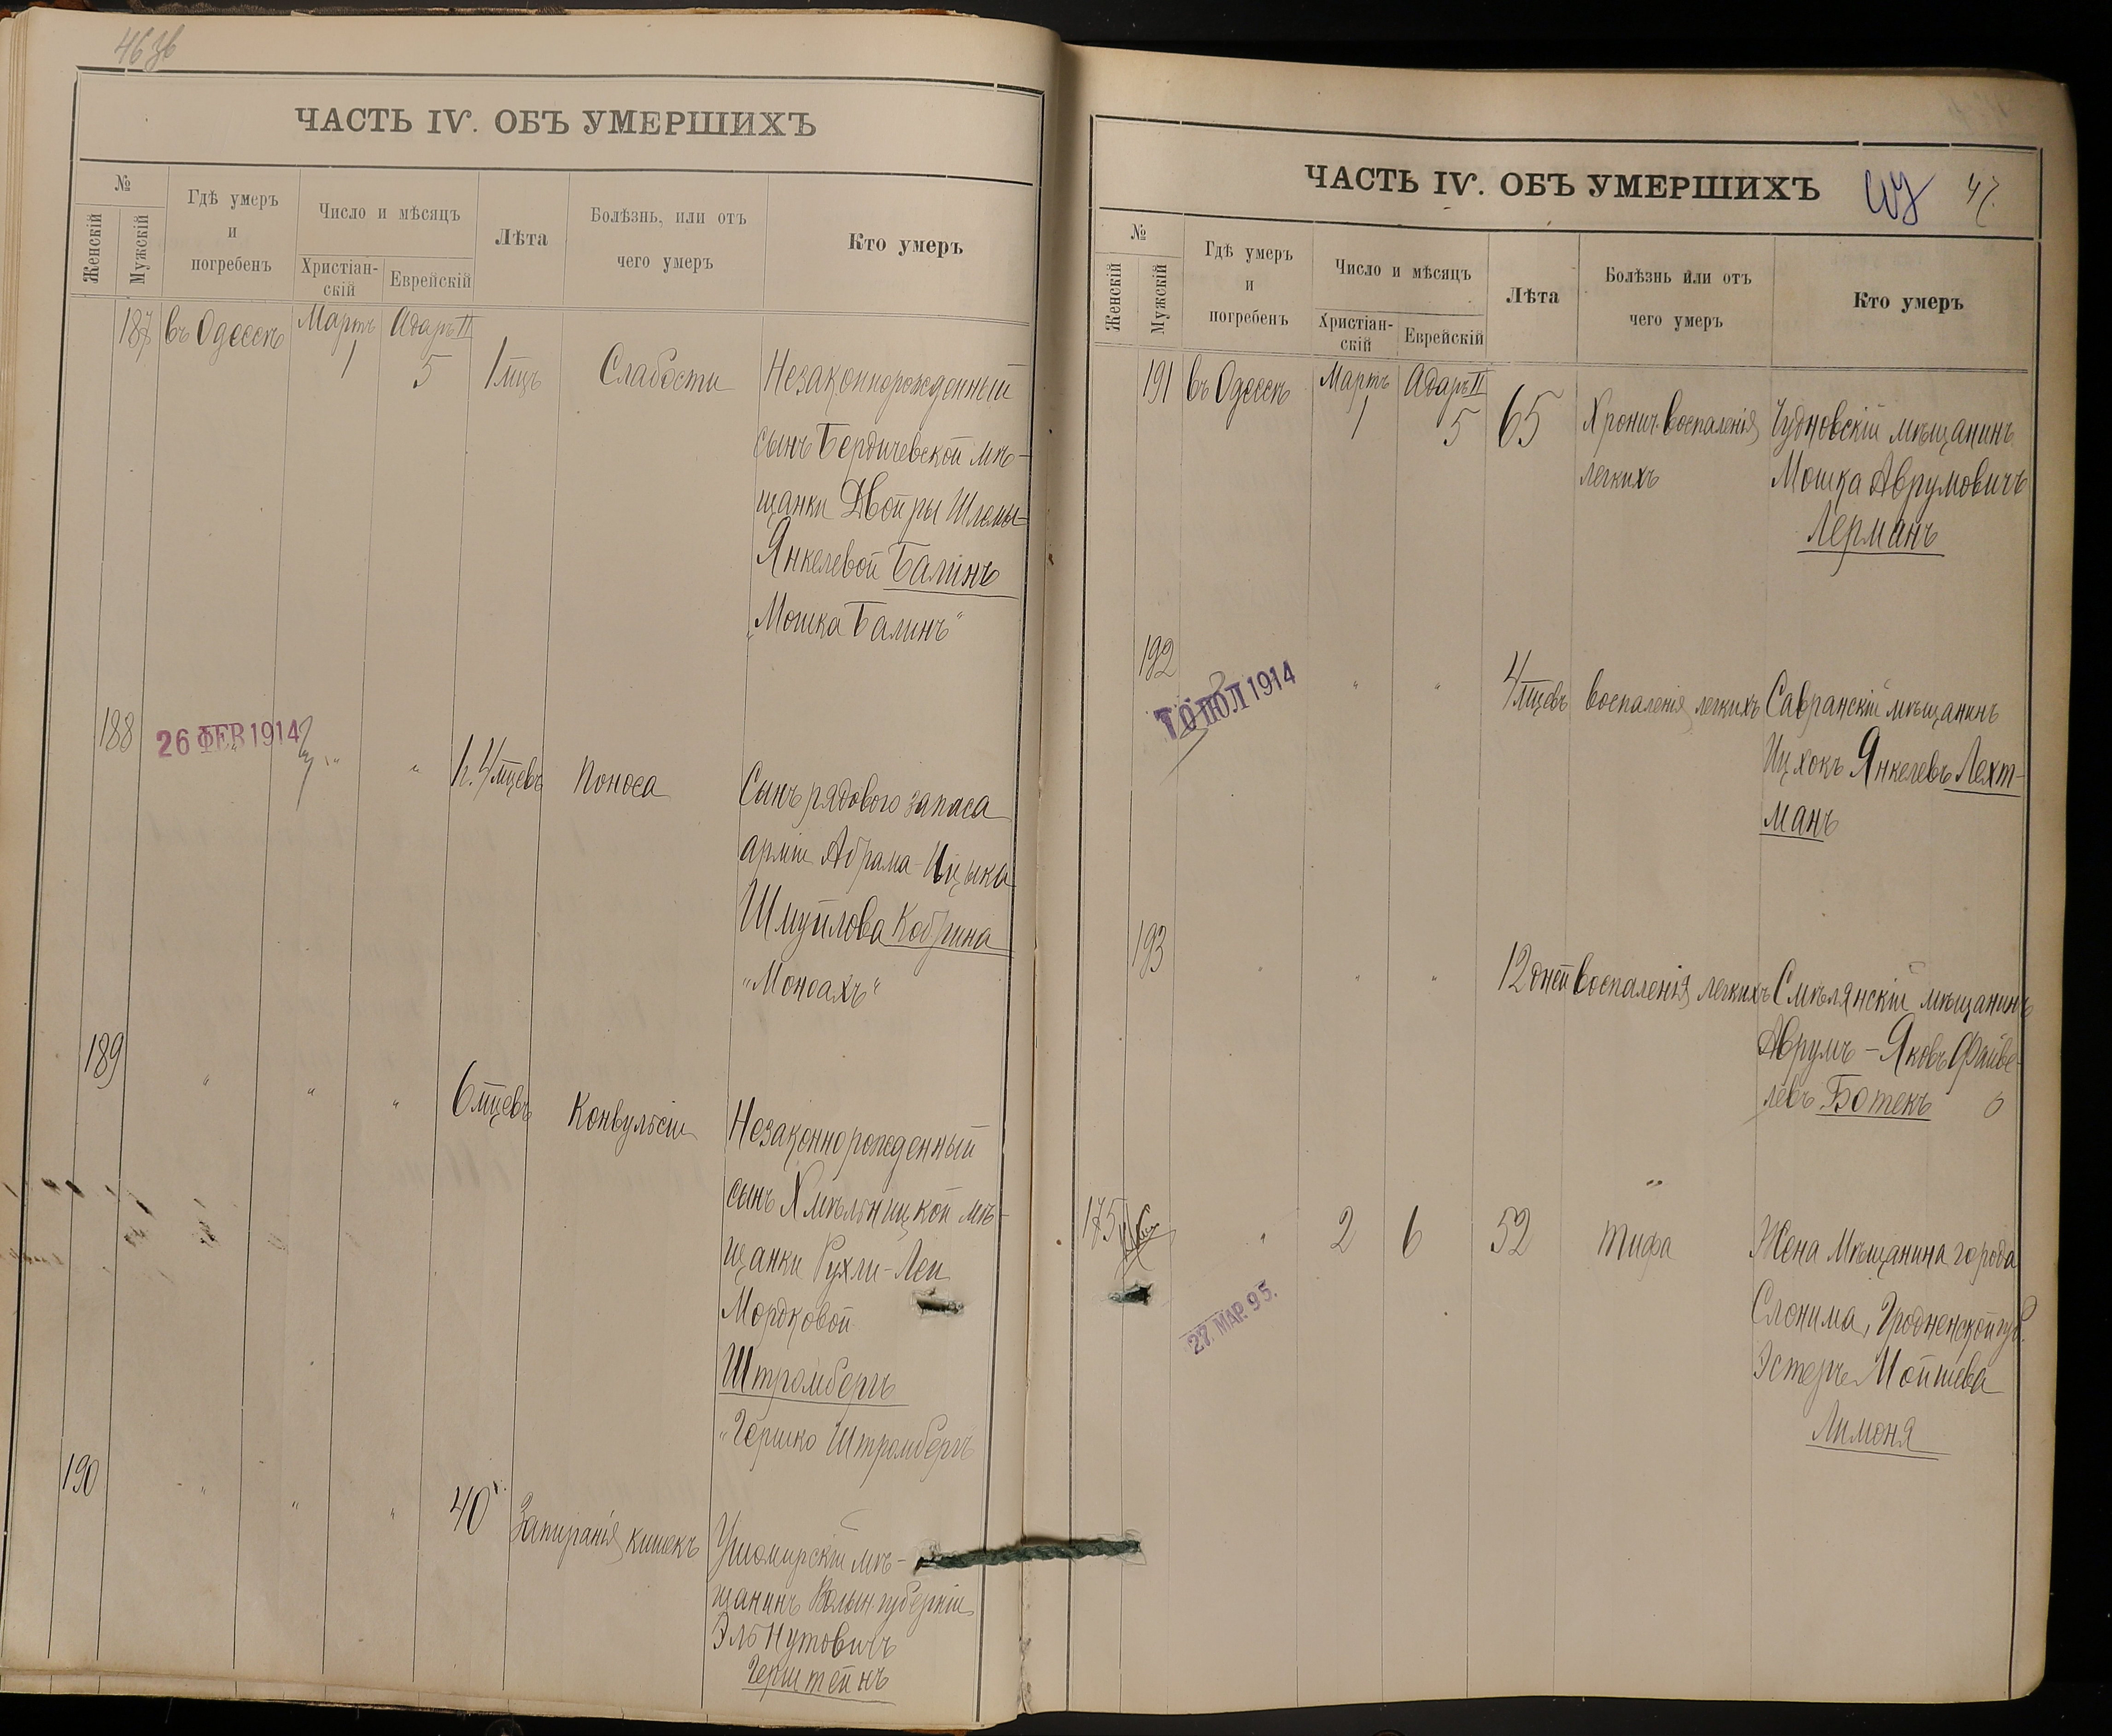 46 зв
ЧАСТЬ IV. ОБЪ УМЕРШИХЪ
№
Женскій
Мужскій
Гдѣ умеръ
и
погребенъ
Число и мѣсяцъ
Христіан-
скій
Еврейскій
Лѣта
Болѣзнь, или отъ
чего умеръ
Кто умеръ
187 въ Одессѣ Мартъ Адаръ II
1 5 1 мцъ Слабости Незаконнорожденный
сынъ Бердичевской мѣ-
щанки Двойры Шлемы-
Янкелевой Балинъ
„Мошка Балинъ"
188 26 ФЕВ 1914 " "
4 мцевъ Поноса Сынъ рядового запаса
арміи Абрама-Ицыка
Шмуйлова Кобрина
"Моноахъ"
189 " " " 6 мцевъ Конвульсіи Незаконнорожденный
сынъ Хмѣльницкой мѣ-
щанки Рухли-Леи
Мордковой
Штромбергъ
"Гершко Штромбергъ
190 " " " 40 Запиранія кишекъ Ушомирскій мѣ-
щанинъ Волын. губерніи
Эль Нутовичъ
Герштейнъ
ЧАСТЬ IV. ОБЪ УМЕРШИХЪ
47.
№
Женскій
Мужскій
Гдѣ умеръ
и
погребенъ
Число и мѣсяцъ
Христіан-
скій
Еврейскій
Лѣта
Болѣзнь или отъ
чего умеръ
Кто умеръ
191 въ Одессѣ Мартъ Адаръ II
1 5 65 Хронич. воспаленія Чудновскій мѣщанинъ
легкихъ Мошка Аврумовичъ
Лерманъ
192 ИЮЛ 1914 " " 4 мцевъ воспаленія легкихъ Савранскій мѣщанинъ
Ицхокъ Янкелевъ Лехт-
манъ
193 " " " 12 дней воспаленія легкихъ Смѣлянскій мѣщанинъ
Аврумъ-Яковъ Файве-
левъ Ботекъ
175 " 2 6 52 Тифа Жена мѣщанина города
27. МАР. 95. Слонима, Гродненской губ.
Эстеръ Мойшева
Лимоня